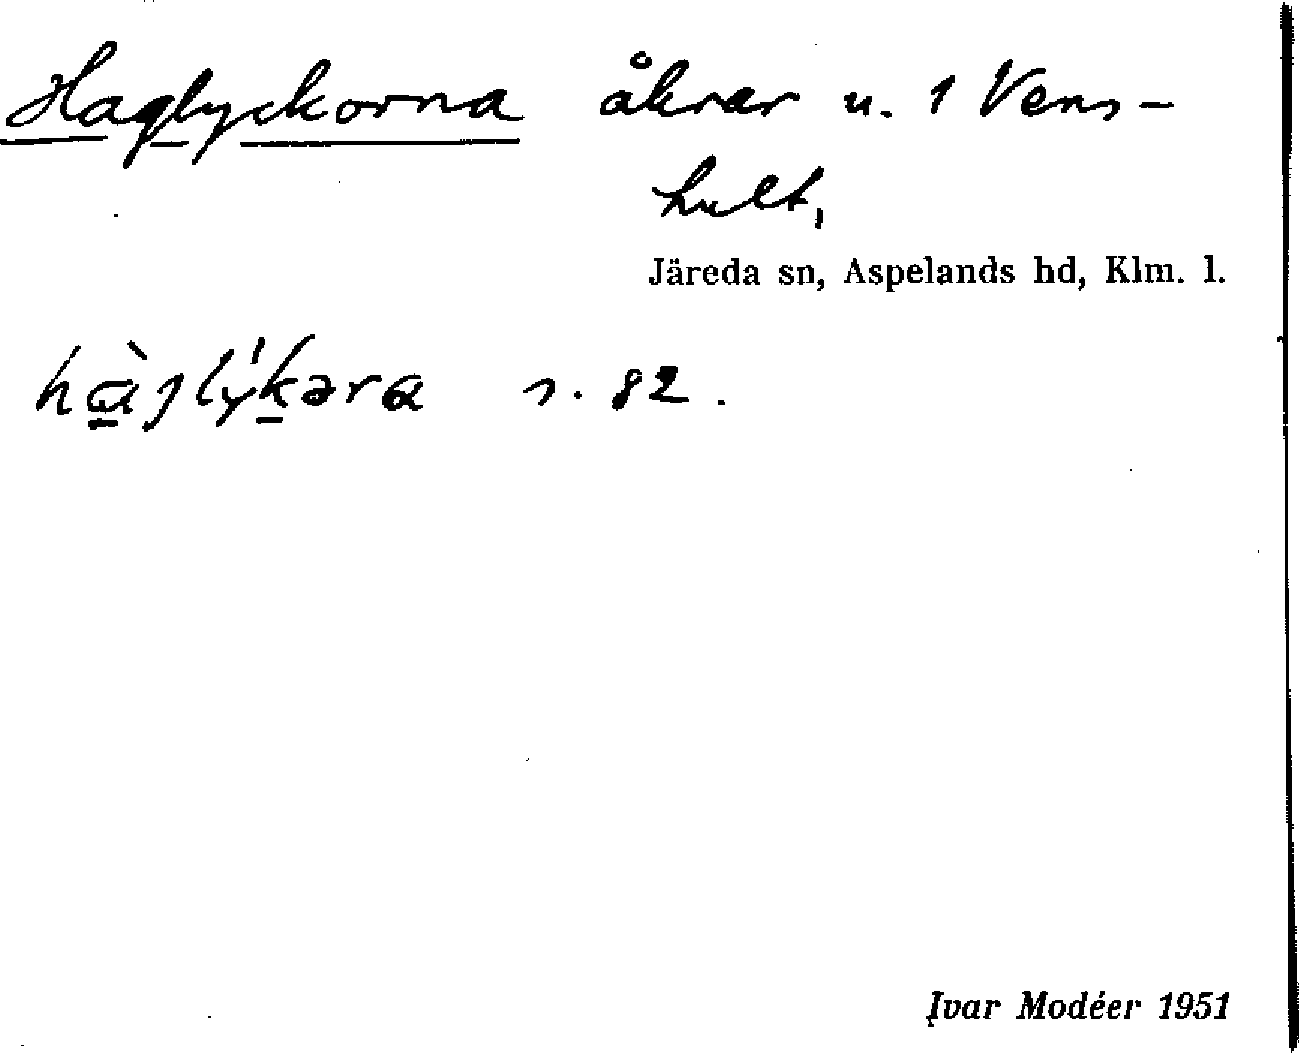 Haglyckorna åkrar u. 1 Vens-
hult,
Järeda sn, Aspelands hd, Klm. l.
hàglýkəra s. 82.
Ivar Modéer 1951